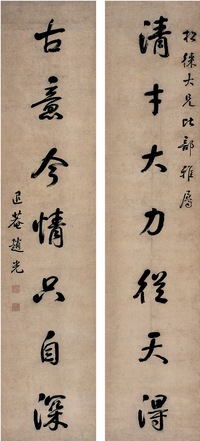 松䅘大兄比部雅屬
清才大力從天得
古意今情只自深
退菴趙光